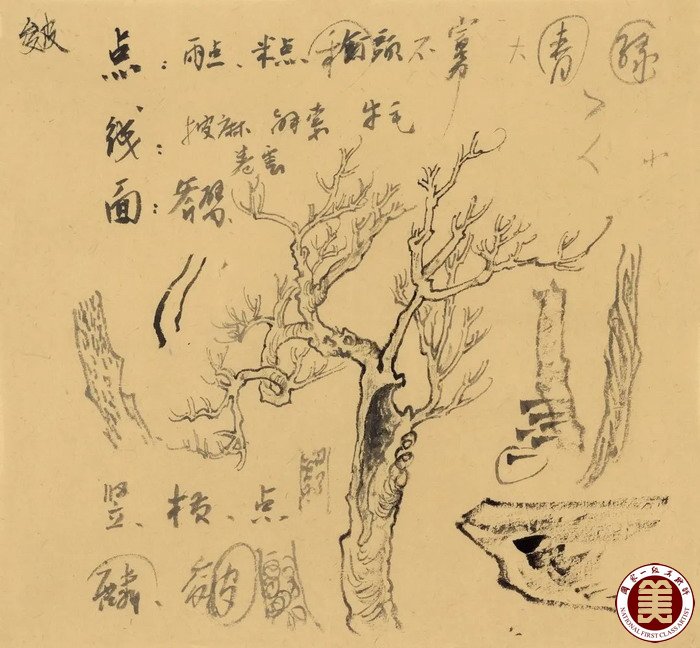 皴
点：雨点、米点 豆 不 大 青 绿
线：披麻 解索 牛毛
卷云 小
面：斧劈
竖、横、点
鳞、皴
国家一级美术师
美
NATIONAL FIRST CLASS ARTIST